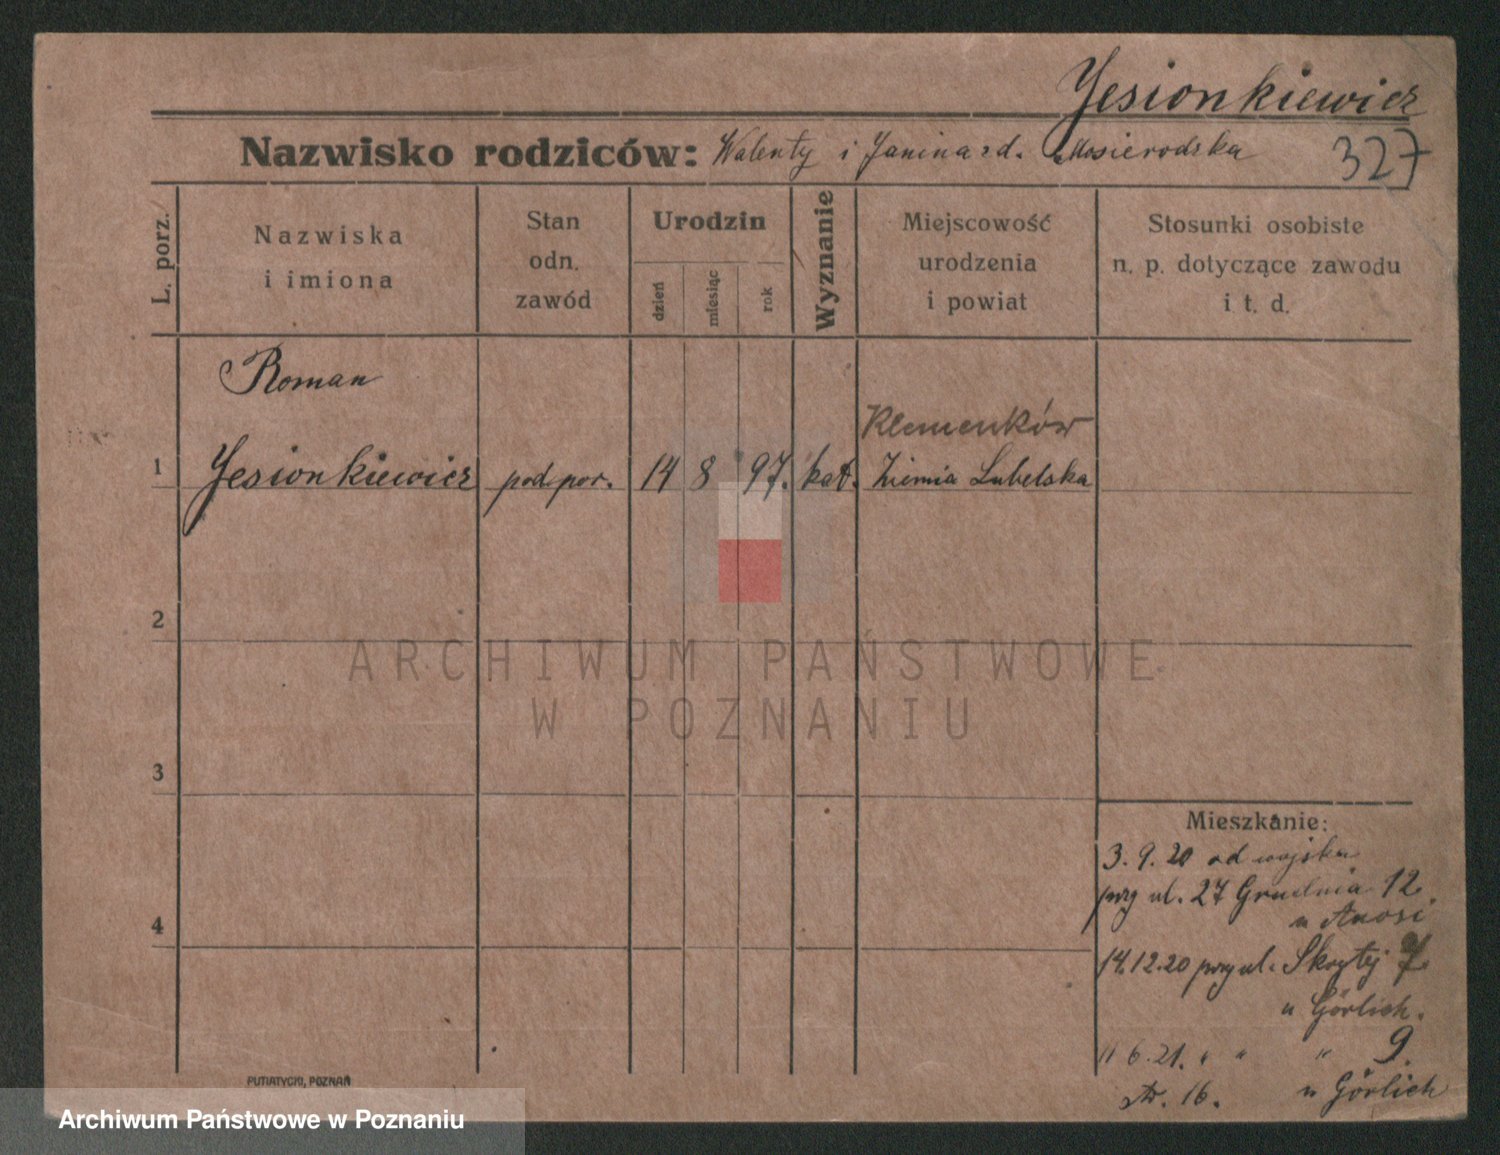 Jesionkiewicz
Nazwisko rodziców: Walenty i Janina zd. Mosierodzka
327
L. porz.
Nazwiska
i imiona
Stan
odn.
zawód
Urodzin
dzień
miesiąc
rok
Wyznanie
Miejscowość
urodzenia
i powiat
Stosunki osobiste
n. p. dotyczące zawodu
i t. d.
Roman
Klemenków
1 Jesionkiewicz podpor. 14 8 97. kat. Ziemia Lubelska
2
ARCHIWUM PAŃSTWOWE
W POZNANIU
3
4
Mieszkanie:
3. 9. 20 od wojska
przy ul. 27 Grudnia 12
u
14.12.20 przy ul. Skrytej 7
u Görlich.
11 6. 21. " " " 9.
str. 16. u Görlich
PUTIATYCKI, POZNAŃ
Archiwum Państwowe w Poznaniu